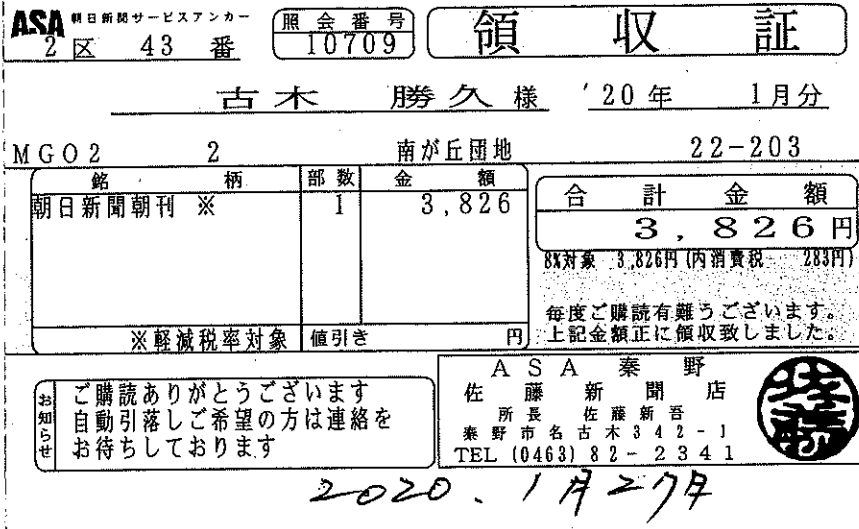 ASA 朝日新聞サービスアンカー
2区 43 番
照会番号
10709
領収証
古木 勝久 様 '20年 1月分
MG02 2 南が丘団地 22-203
銘柄 部数 金額
朝日新聞朝刊 ※ 1 3,826
※軽減税率対象 値引き 円
合計金額
3,826円
8%対象 3,826円(内消費税 283円)
毎度ご購読有難うございます。
上記金額正に領収致しました。
お知らせ
ご購読ありがとうございます
自動引落しご希望の方は連絡を
お待ちしております
ASA 秦野
佐藤新聞店
所長 佐藤新吾
秦野市名古木342-1
TEL (0463) 82-2341
佐藤
2020. 1月27日